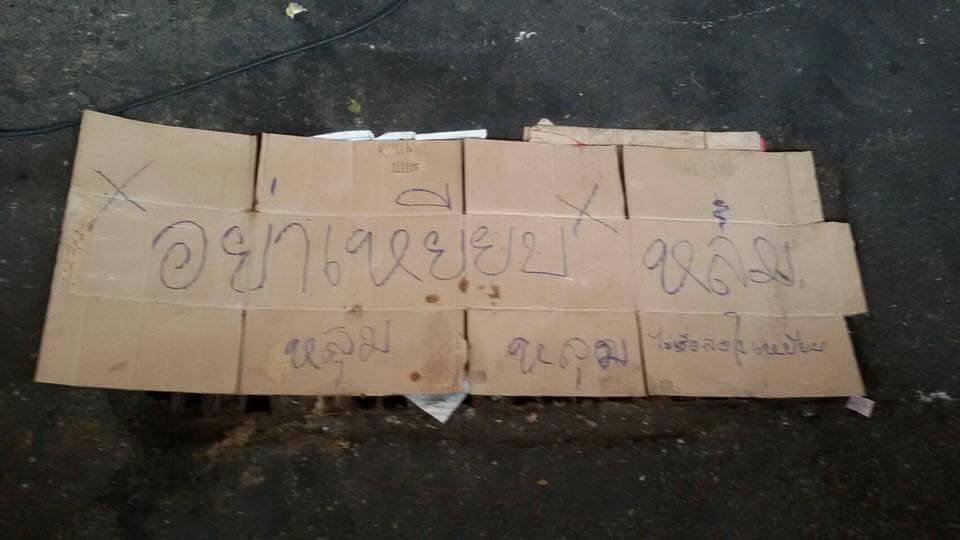 X อย่าเหยียบ X หล่ม.
หลุม หลุม ไม่เชื่อลองไปเหยียบ